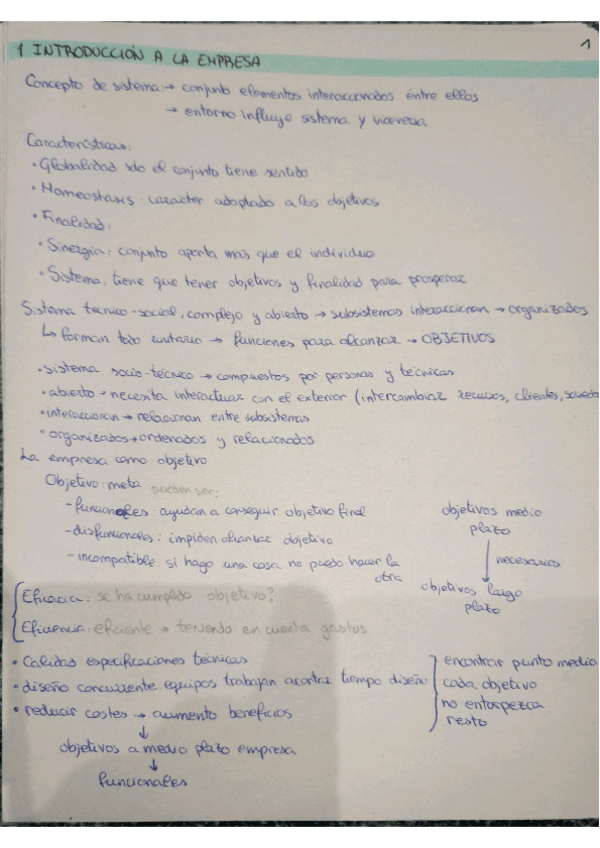 1 INTRODUCCIÓN A LA EMPRESA
1
Concepto de sistema: → conjunto elementos interaccionados entre ellos
→ entorno influye sistema y viceversa
Características:
• Globalidad solo el conjunto tiene sentido
• Homeostasis: carácter adaptado a los objetivos
• Finalidad:
• Sinergia: conjunto aporta más que el individuo
• Sistema: tiene que tener objetivos y finalidad para prosperar
Sistema técnico-social, complejo y abierto → subsistemas interaccionan → organizados
↳ forman todo unitario → funciones para alcanzar → OBJETIVOS
• sistema socio-técnico → compuestos por personas y técnicas
• abierto → necesita interactuar con el exterior (intercambiar recursos, clientes,
• interaccionan → relacionan entre subsistemas
• organizados → ordenados y relacionados
La empresa como objetivo
Objetivo: meta pueden ser:
- funcionales: ayudan a conseguir objetivo final
- disfuncionales: impiden alcanzar objetivo
- incompatible: si hago una cosa no puedo hacer la
otra
objetivos medio
plazo
↓ necesarios
objetivos largo
plazo
Eficacia: se ha cumplido objetivo?
Eficiencia: eficiente → teniendo en cuenta gastos
• Calidad especificaciones técnicas
• diseño concurrente: equipos trabajan acortar tiempo diseño
• reducir costes → aumento beneficios
encontrar punto medio
cada objetivo
no entorpezca
resto
↓
objetivos a medio plazo empresa
↓
funcionales